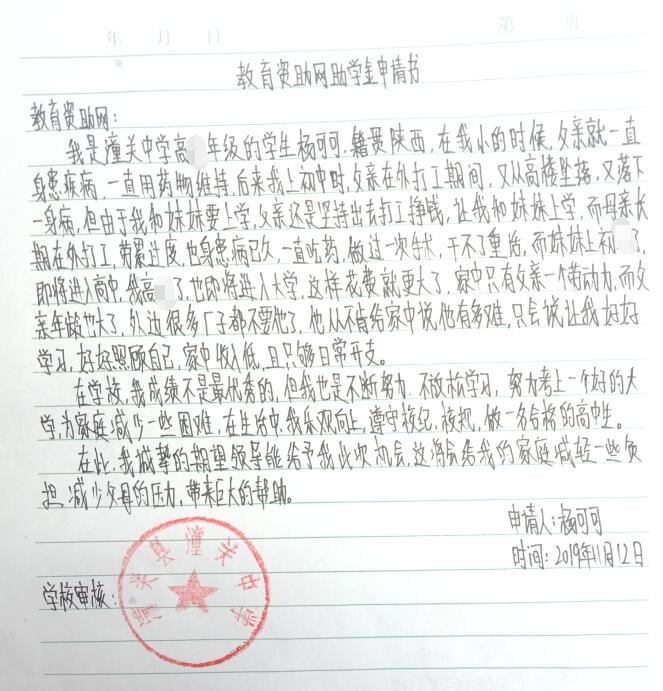 年 月 日 第 页
教育资助网助学金申请书
教育资助网:
我是潼关中学高 年级的学生杨可可,籍贯陕西,在我小的时候,父亲就一直
身患疾病,一直用药物维持,后来我上初中时,父亲在外打工期间,又从高楼坠落,又落下
一身病,但由于我和妹妹要上学,父亲还是坚持出去打工挣钱,让我和妹妹上学,而母亲长
期在外打工,劳累过度,也身患病已久,一直吃药,做过一次手术,干不了重活,而妹妹上初 了,
即将进入高中,我高 了,也即将进入大学,这样花费就更大了,家中只有父亲一个劳动力,而父
亲年龄也大了,外边很多厂子都不要他了,他从不肯给家中说他有多难,只会说让我好好
学习,好好照顾自己,家中收入低,且只够日常开支。
在学校,我成绩不是最优秀的,但我也是不断努力,不放松学习,努力考上一个好的大
学,为家庭减少一些困难,在生活中,我乐观向上,遵守校纪,校规,做一名合格的高中生。
在此,我诚挚的期望领导能给予我此次机会,这将会给我的家庭减轻一些负
担,减少父母的压力,带来巨大的帮助。
申请人:杨可可
时间:2019年11月12日
学校审核:
潼关县潼关中学